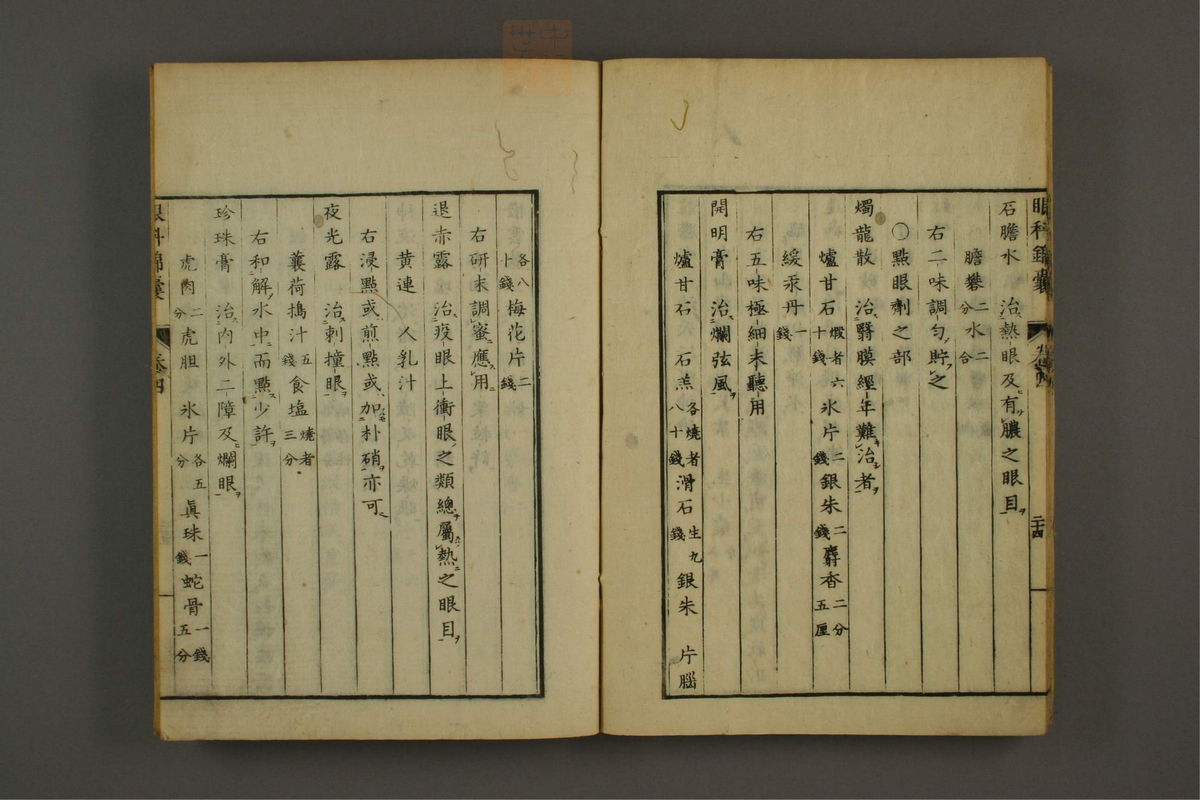 眼科錦囊 卷四 二十四
石膽水 治熱眼及有膿之眼目
膽礬二分水二合
右二味調勻貯之
○點眼劑之部
燭龍散 治翳膜經年難治者
爐甘石煅者六十錢氷片二錢銀朱二錢麝香二分五厘
緩汞丹一錢
右五味極細末聽用
開明膏 治爛弦風
爐甘石 石羔各燒者八十錢滑石生九錢銀朱 片腦
各八十錢梅花片二錢
右研末調蜜應用
退赤露 治疫眼上衝眼之類總屬熱之眼目
黄連 人乳汁
右浸點或煎點或加朴硝亦可
夜光露 治刺撞眼
蘘荷搗汁五錢食塩燒者三分
右和解水中而點少許
珍珠膏 治内外二障及爛眼
虎肉二分虎胆 氷片各五分眞珠一錢蛇骨一錢五分
眼科錦囊 卷四